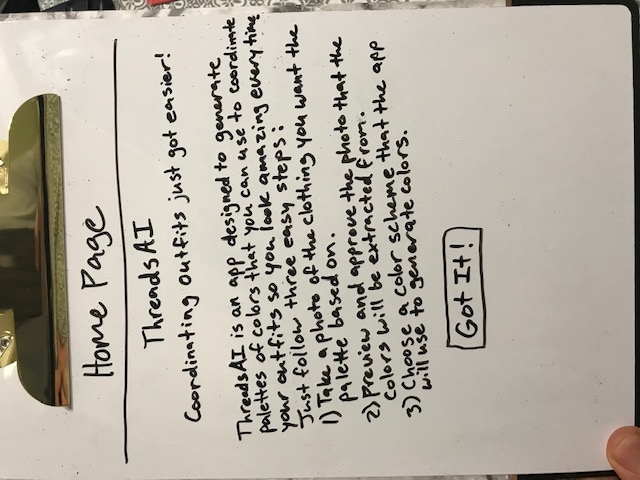 Home Page
ThreadsAI
Coordinating outfits just got easier!
ThreadsAI is an app designed to generate
palettes of colors that you can use to coordinate
your outfits so you look amazing every time
Just follow three easy steps:
1) Take a photo of the clothing you want the
palette based on.
2) Preview and approve the photo that the
colors will be extracted from.
3) Choose a color scheme that the app
will use to generate colors.
Got It!